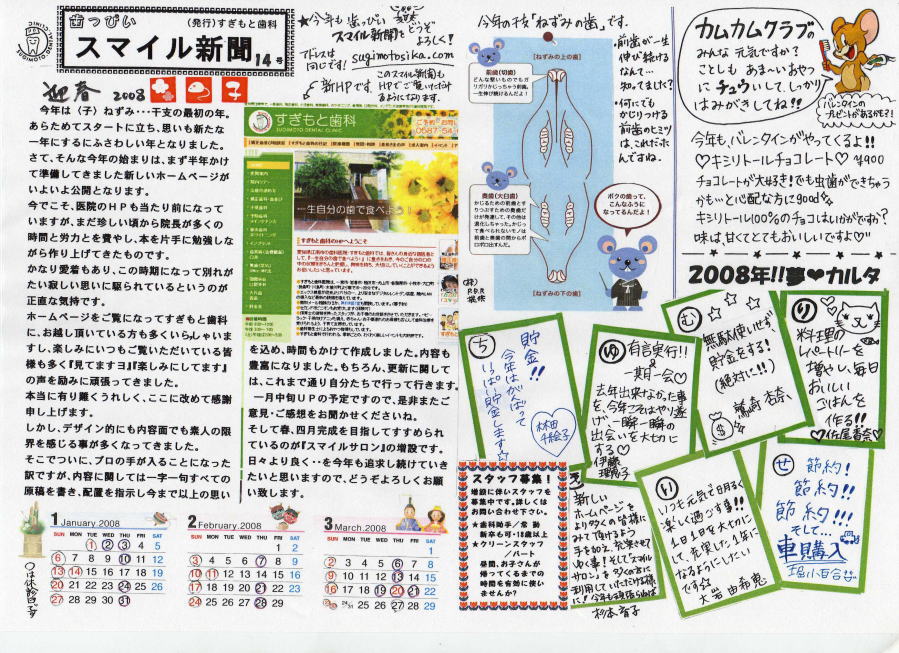 歯っぴい
(発行)すぎもと歯科
スマイル新聞 14号
迎春 2008
今年は〈子〉ねずみ…干支の最初の年。
あらためてスタートに立ち、思いも新たな
一年にするにふさわしい年となりました。
さて、そんな今年の始まりは、まず半年かけ
て準備してきました新しいホームページが
いよいよ公開となります。
今でこそ、医院のHPも当たり前になって
いますが、まだ珍しい頃から院長が多くの
時間と労力とを費やし、本を片手に勉強しな
がら作り上げてきたものです。
かなり愛着もあり、この時期になって別れが
たい寂しい思いに駆られているというのが
正直な気持です。
ホームページをご覧になってすぎもと歯科
に、お越し頂いている方も多くいらっしゃいま
すし、楽しみにいつもご覧いただいている皆
様も多く『見てますヨ』『楽しみにしてます』
の声を励みに頑張ってきました。
本当に有り難くうれしく、ここに改めて感謝
申し上げます。
しかし、デザイン的にも内容面でも素人の限
界を感じる事が多くなってきました。
そこでついに、プロの手が入ることになった
訳ですが、内容に関しては一字一句すべての
原稿を書き、配置を指示し今まで以上の思い
を込め、時間もかけて作成しました。内容も
豊富になりました。もちろん、更新に関して
は、これまで通り自分たちで行って行きます。
一月中旬UPの予定ですので、是非またご
意見・ご感想をお聞かせくださいね。
そして春、四月完成を目指してすすめられ
ているのが『スマイルサロン』の増設です。
日々より良く・・を今年も追求し続けていき
たいと思いますので、どうぞよろしくお願
い致します。
★今年も歯っぴい
スマイル新聞をどうぞ
よろしく!
アドレスは
同じです! sugimotosika.com
新HPです
このスマイル新聞も
HPでご覧いただけ
るようになります。
すぎもと歯科
SUGIMOTO DENTAL CLINIC
0587-54
一生自分の歯で食べよう
すぎもと歯科のHPへようこそ
今年の干支「ねずみの歯」です。
[ねずみの上の歯]
前歯(切歯)
どんな堅いものでもガ
リガリかじっちゃう前歯。
一生伸び続けるんだよ!
奥歯(大臼歯)
[ねずみの下の歯]
ボクの歯って、
こんなふうに
なってるんだよ!
・前歯が一生
伸び続ける
なんて…
知ってました?
・何にでも
かじりつける
前歯のヒミツ
は、これだった
んですね。
カムカムクラブの
みんな元気ですか?
ことしも あま~いおやつ
に チュウいして、しっかり
はみがきしてね!!
バレンタインの
プレゼントがあるかも!?
今年も、バレンタインがやってくるよ!!
♡キシリトールチョコレート♡ ¥900
チョコレートが大好き!でも虫歯ができちゃう
かも…と心配な方に
キシリトール100%のチョコはいかがですか?
味は、甘くてとてもおいしいですよ♡
2008年!!夢♥カルタ
ち
貯金!!
今年はがんばって
いっぱい貯金します☆
林田
千絵子
ゆ
有言実行!!
&
一期一会♡
去年出来なかった事
を、今年こそはやり遂
げ、一瞬一瞬の
出会いを大切に
する♡
伊藤
む
無駄使いせず
貯金をする!
(絶対に!!)
り
料理の
レパートリーを
増やし、毎日
おいしい
ごはんを
作る!!
スタッフ募集!
増設に伴いスタッフを
募集中です。詳しくは
お問い合わせ下さい。
★歯科助手/常勤
新卒も可・18歳以上
★クリーンスタッフ
/パート
昼間、お子さんが
帰ってくるまでの
時間を有効に使い
ませんか?
新しい
ホームページを
より多くの皆様に
みて頂けるよう
手を加え、充実させて
ゆく事!そして『スマイル
サロン』を多くの方に
利用していただける様
に!今年も頑張らねば
杉本
い
いつも元気で明るく
楽しく過ごす事!!
1日1日を大切に
して、充実した1年に
なるようにしたい
です☆
せ
節約!
節約!!
節約!!!
そして…
車購入
1 January.2008
SUN MON TUE WED THU FRI SAT
1 2 3 4 5
6 7 8 9 10 11 12
13 14 15 16 17 18 19
20 21 22 23 24 25 26
27 28 29 30 31
2 February.2008
SUN MON TUE WED THU FRI SAT
1 2
3 4 5 6 7 8 9
10 11 12 13 14 15 16
17 18 19 20 21 22 23
24 25 26 27 28 29
3 March.2008
SUN MON TUE WED THU FRI SAT
1
2 3 4 5 6 7 8
9 10 11 12 13 14 15
16 17 18 19 20 21 22
23/30 24/31 25 26 27 28 29
○は休診日です